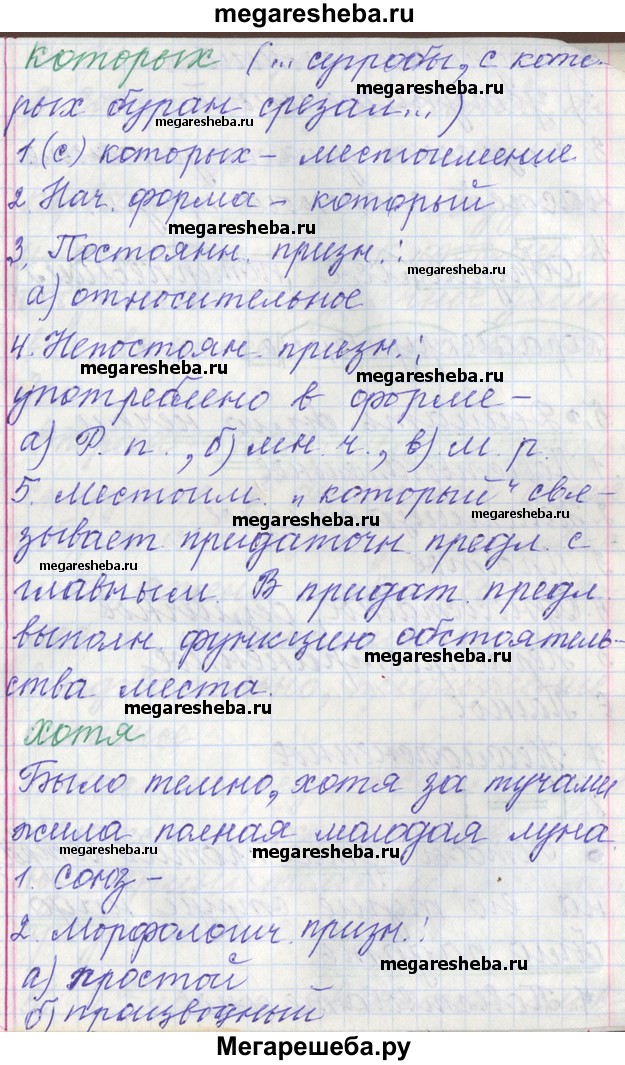 megaresheba.ru
которых (... сугробы, с кото-
megaresheba.ru
рых буран срезал...)
megaresheba.ru
megaresheba.ru
1. (с) которых – местоимение
2. Нач. форма – который
megaresheba.ru
megaresheba.ru
3. Постоянн. призн.:
megaresheba.ru
а) относительное
4. Непостоян. призн.:
megaresheba.ru
megaresheba.ru
употреблено в форме –
а) Р. п., б) мн. ч., в) м. р.
5. местоим. „который" свя-
megaresheba.ru
megaresheba.ru
зывает придаточн предл. с
megaresheba.ru
главным. В придат. предл.
выполн. функцию обстоятель-
megaresheba.ru
ства места.
megaresheba.ru
хотя
Было темно, хотя за тучами
megaresheba.ru
megaresheba.ru
жила полная молодая луна.
megaresheba.ru
megaresheba.ru
1. союз –
2. Морфологич. призн.:
megaresheba.ru
а) простой
б) производный
Мегарешеба.ру